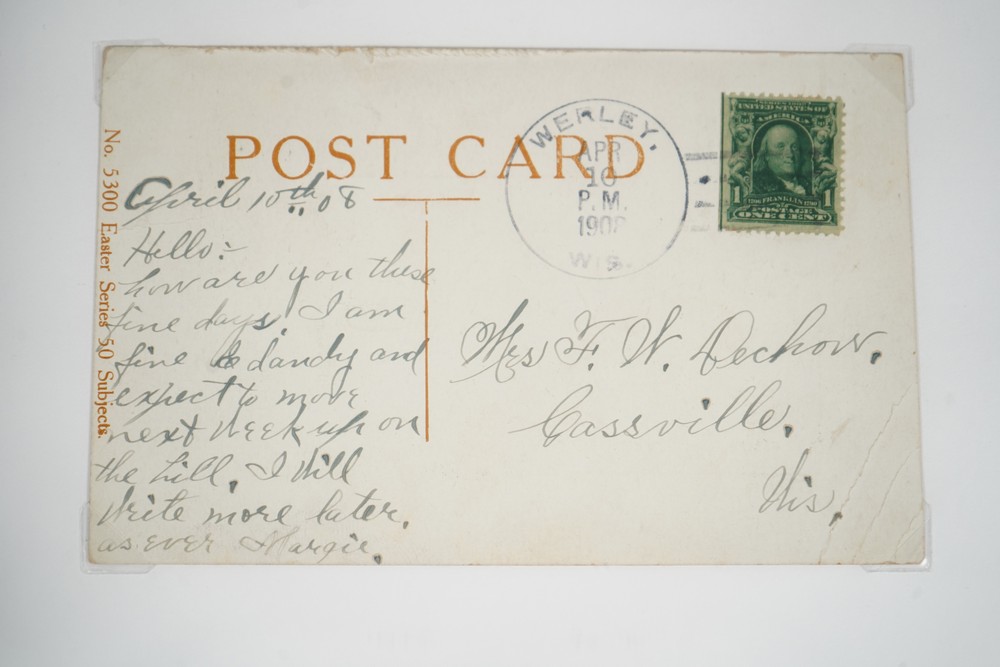 No. 5300 Easter Series 50 Subjects.
POST CARD
WERLEY,
APR
10
P.M.
1908
WIS.
SERIES 1902
UNITED STATES OF
AMERICA
1 1
1706 FRANKLIN 1790
POSTAGE
ONE CENT
April 10th 08
Hello:-
how are you these
fine days, I am
fine & dandy and
expect to move
next week up on
the hill. I will
write more later.
as ever Margie.
Mrs F. W. Dechow.
Cassville,
Wis,